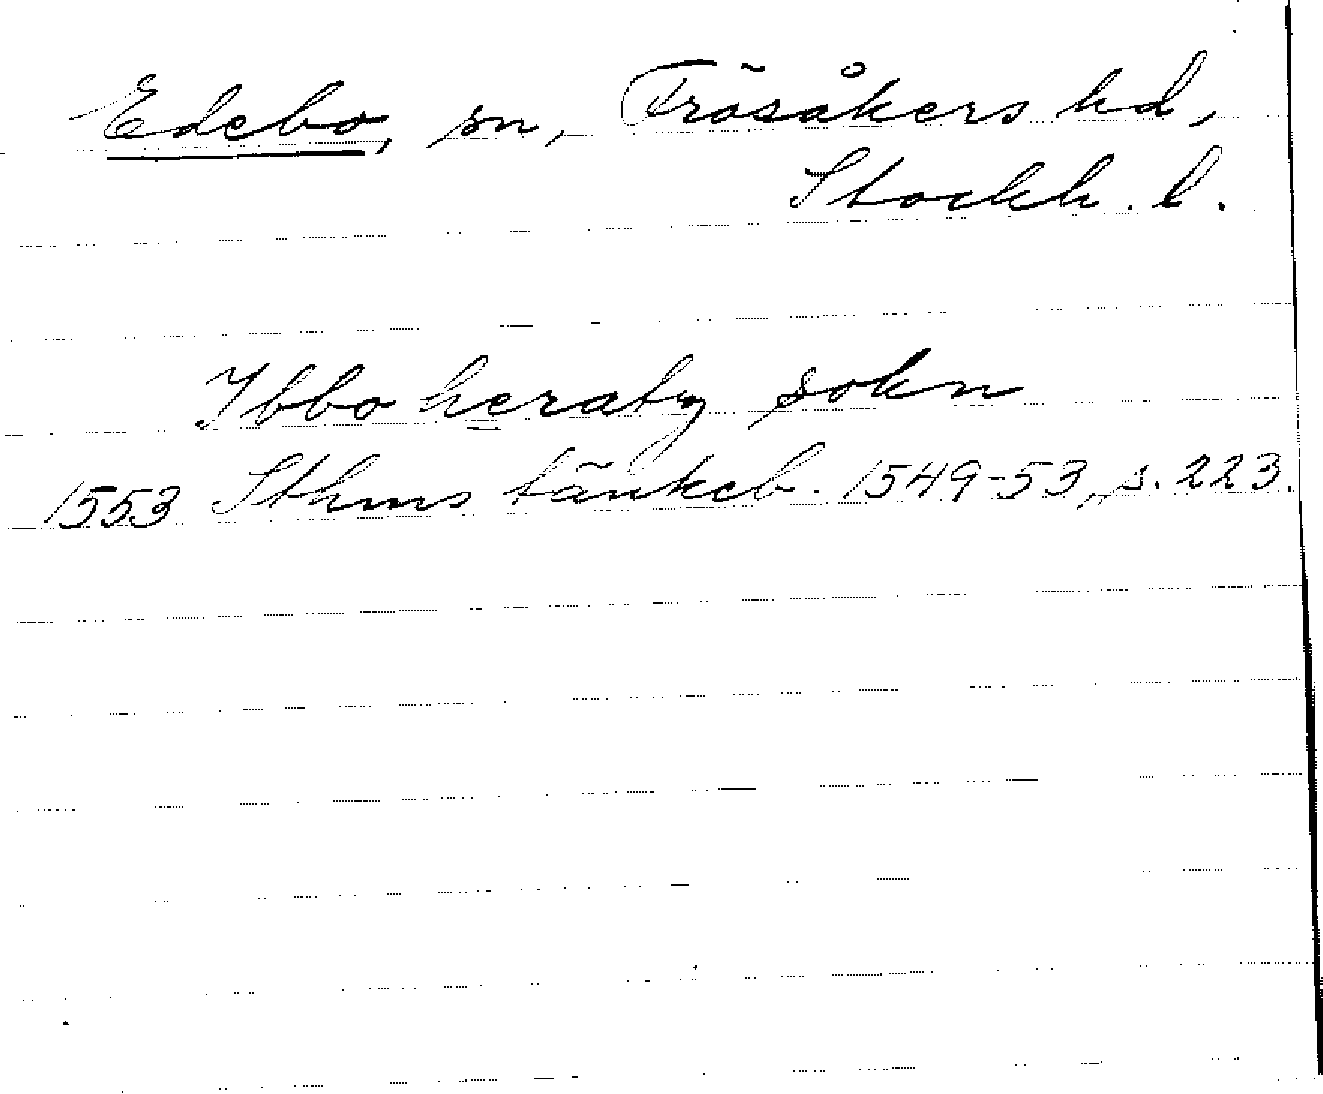 Edebo, sn, Frösåkers hd,
Stockh. l.
Ibbo heratz sokn
1553 Sthms tänkeb. 1549-53, s. 223.